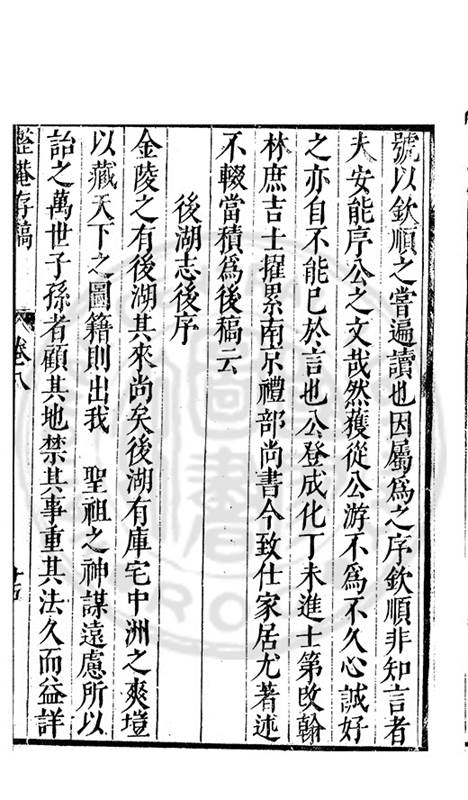 號以欽順之嘗遍讀也因屬爲之序欽順非知言者
夫安能序公之文哉然蒦從公游不爲不久心誠好
之亦自不能已於言也公登成化丁未進士第改翰
林庶吉士擢累南京禮部尚書今致仕家居尤著述
不輟當積爲後稿云
後湖志後序
金陵之有後湖其來尚矣後湖有庫宅中洲之爽塏
以藏天下之圖籍則出我 聖祖之神謀遠慮所以
詒之萬世子孫者顧其地禁其事重其法久而益詳
整菴存稿 卷八